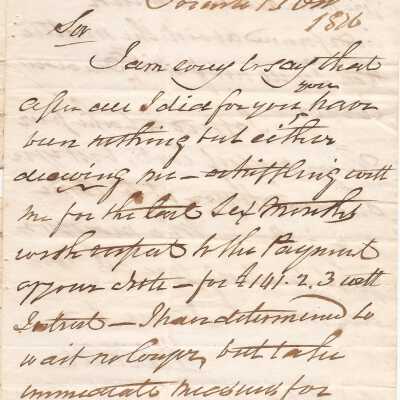 1826
Sir
I am sorry to say that
after all I did for you you have
been nothing but either
deceiving me – or trifling with
me for the last Six Months
with respect to the Payment
of your debt – for £141.2.3 with
Interest – I have determined to
wait no longer, but take
immediate measures for